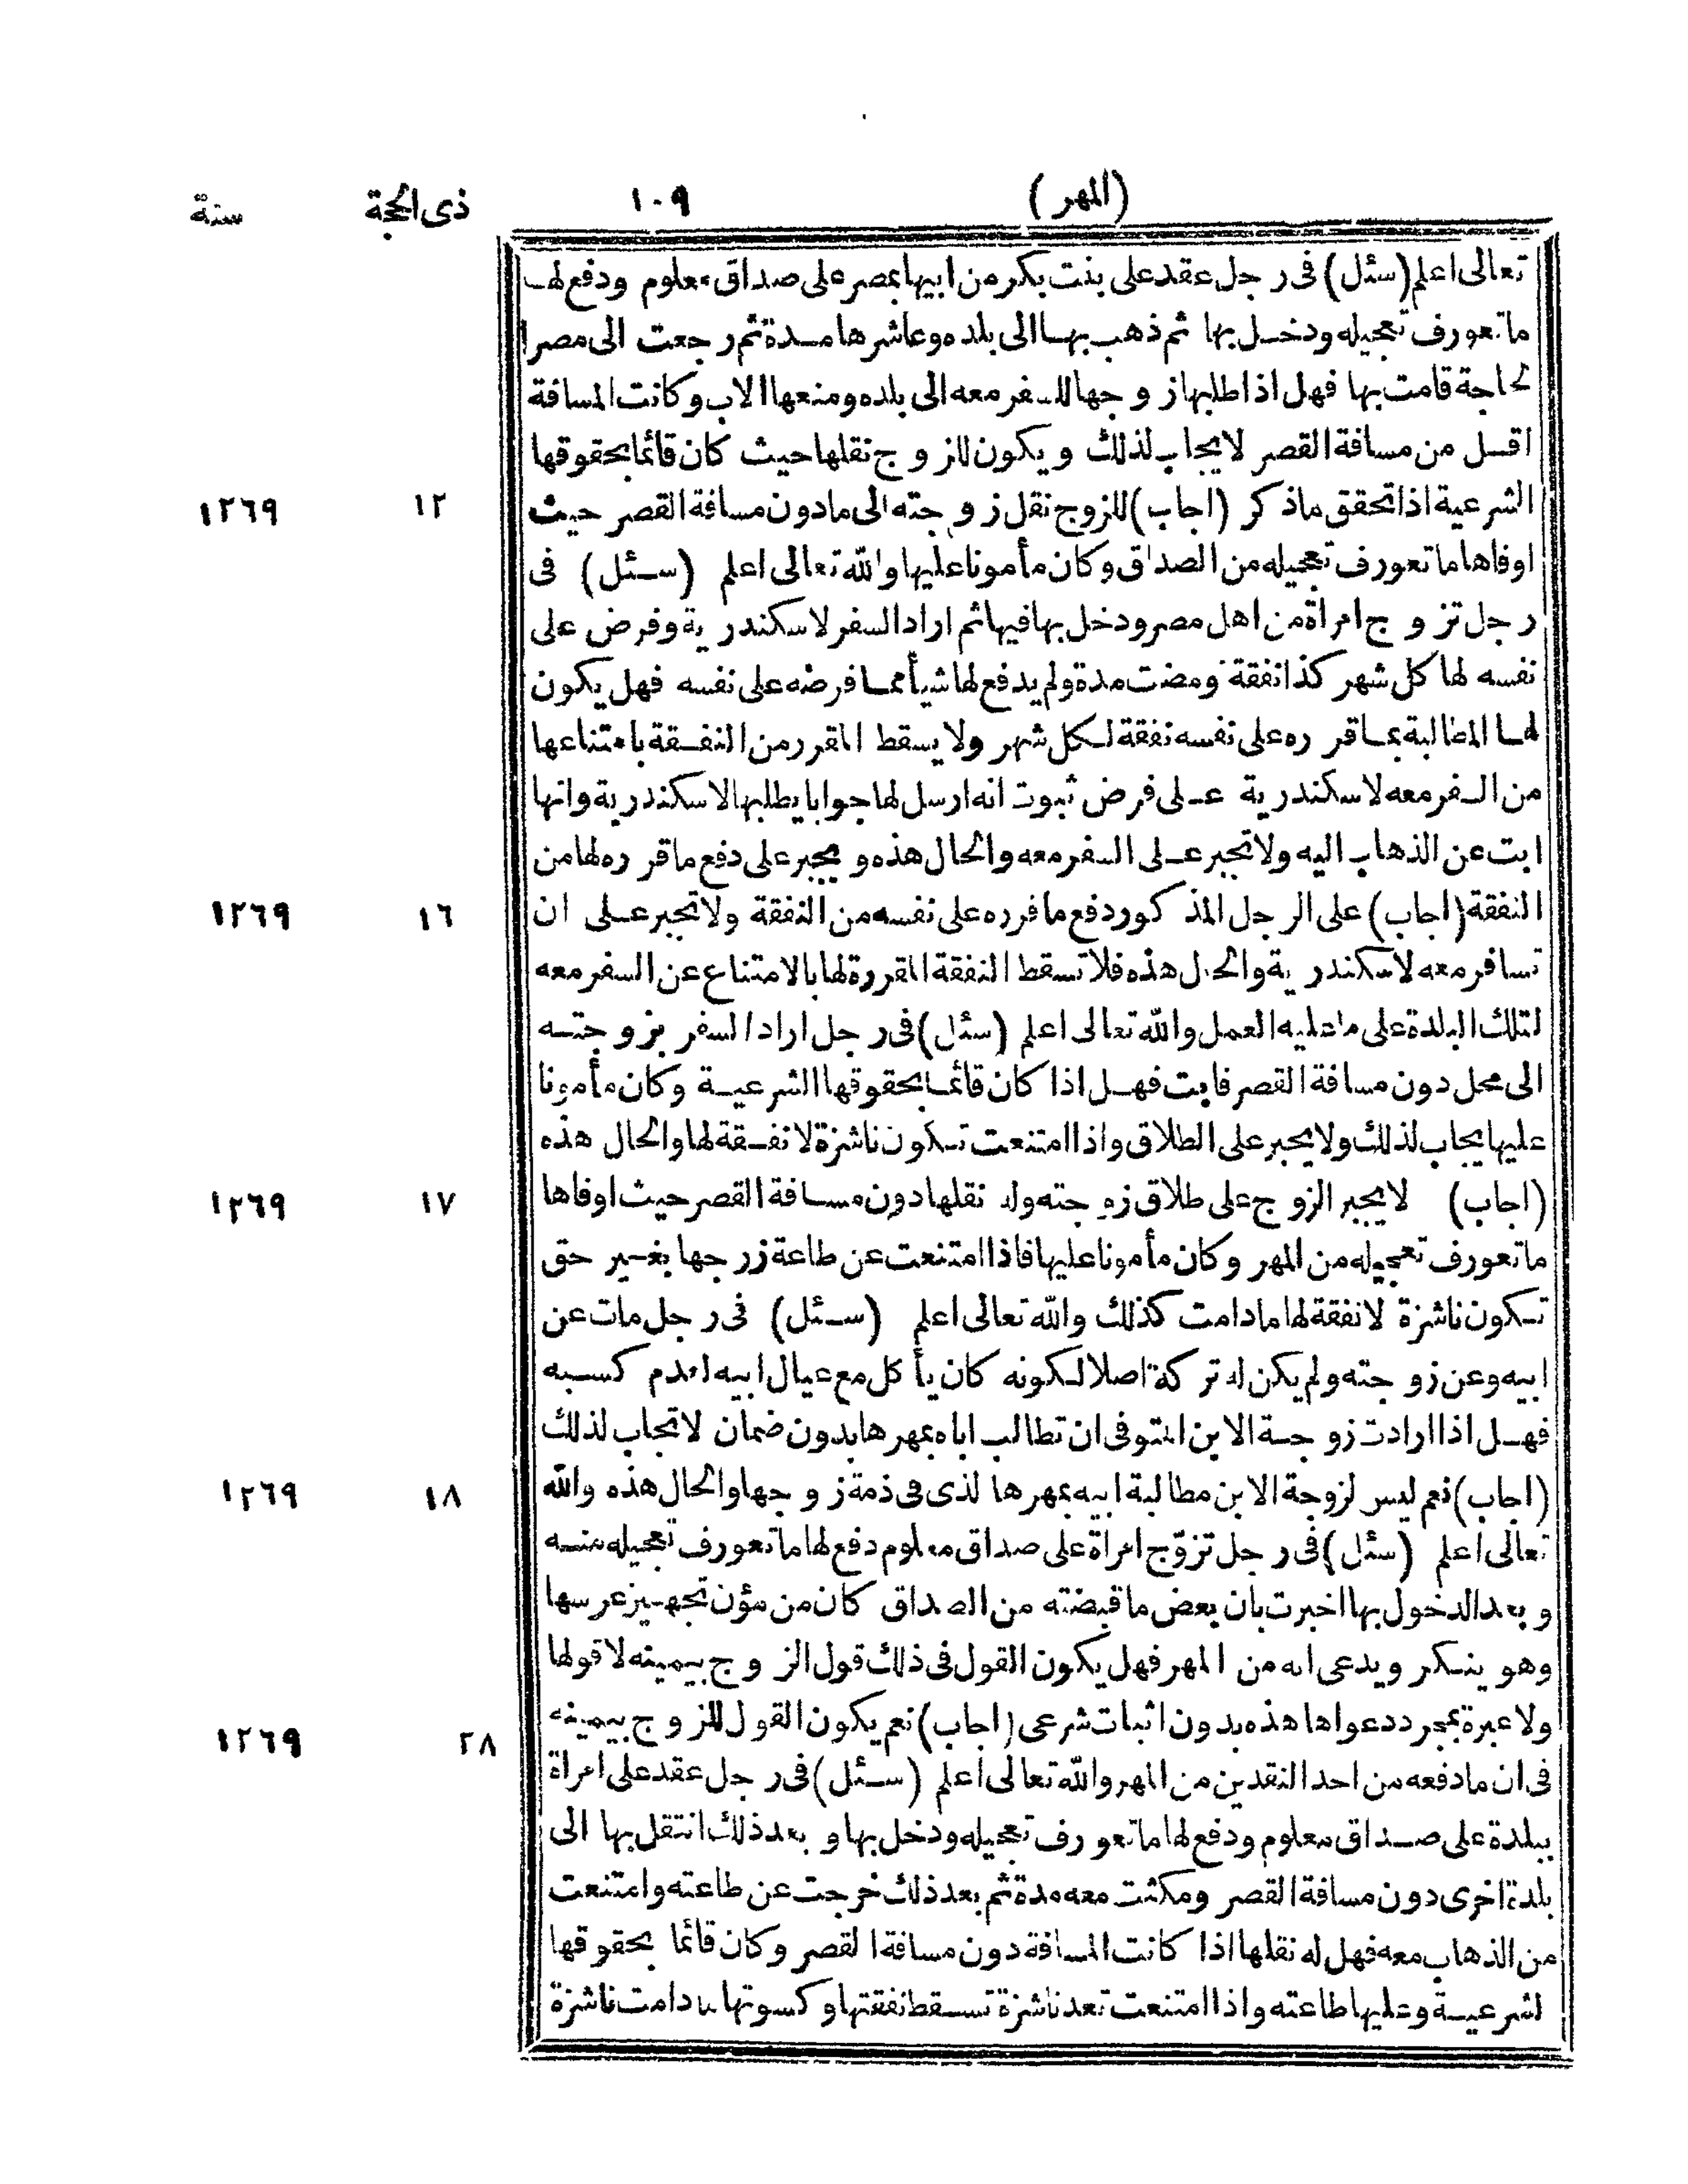 (المهر) ١٠٩ ذى الحجة سنة
تعالى اعلم (سئل) فى رجل عقد على بنت بكر من ابيها بمصر على صداق معلوم ودفع لها
ما تعورف تعجيله ودخل بها ثم ذهب بها الى بلده وعاشرها مدة ثم رجعت الى مصر
لحاجة قامت بها فهل اذا طلبها زوجها للسفر معه الى بلده ومنعها الاب وكانت المسافة
اقل من مسافة القصر لا يجاب لذلك ويكون للزوج نقلها حيث كان قائما بحقوقها
الشرعية اذا تحقق ما ذكر (اجاب) للزوج نقل زوجته الى ما دون مسافة القصر حيث ١٢ ١٢٦٩
اوفاها ما تعورف تعجيله من الصداق وكان مأمونا عليها والله تعالى اعلم (سئل) فى
رجل تزوج امرأة من اهل مصر ودخل بها فيها ثم اراد السفر لاسكندرية وفرض على
نفسه لها كل شهر كذا نفقة ومضت مدة ولم يدفع لها شيأ مما فرضه على نفسه فهل يكون
لها المطالبة بما قرره على نفسه نفقة لكل شهر ولا يسقط المقرر من النفقة بامتناعها
من السفر معه لاسكندرية على فرض ثبوت انه ارسل لها جوابا يطلبها لاسكندرية وانها
ابت عن الذهاب اليه ولا تجبر على السفر معه والحال هذه ويجبر على دفع ما قرره لها من
النفقة (اجاب) على الرجل المذكور دفع ما قرره على نفسه من النفقة ولا تجبر على ان ١٦ ١٢٦٩
تسافر معه لاسكندرية والحال هذه فلا تسقط النفقة المقررة لها بالامتناع عن السفر معه
لتلك البلدة على ما عليه العمل والله تعالى اعلم (سئل) فى رجل اراد السفر بزوجته
الى محل دون مسافة القصر فابت فهل اذا كان قائما بحقوقها الشرعية وكان مأمونا
عليها يجاب لذلك ولا يجبر على الطلاق واذا امتنعت تكون ناشزة لا نفقة لها والحال هذه
(اجاب) لا يجبر الزوج على طلاق زوجته وله نقلها دون مسافة القصر حيث اوفاها ١٧ ١٢٦٩
ما تعورف تعجيله من المهر وكان مأمونا عليها فاذا امتنعت عن طاعة زوجها بغير حق
تكون ناشزة لا نفقة لها ما دامت كذلك والله تعالى اعلم (سئل) فى رجل مات عن
ابيه وعن زوجته ولم يكن له تركة اصلا لكونه كان يأكل مع عيال ابيه لعدم كسبه
فهل اذا ارادت زوجة الابن المتوفى ان تطالب اباه بمهرها بدون ضمان لا تجاب لذلك
(اجاب) نعم ليس لزوجة الابن مطالبة ابيه بمهرها لذى فى ذمة زوجها والحال هذه والله ١٨ ١٢٦٩
تعالى اعلم (سئل) فى رجل تزوّج امرأة على صداق معلوم دفع لها ما تعورف تعجيله منه
وبعد الدخول بها اخبرت بان بعض ما قبضته من الصداق كان من مؤن تجهيز عرسها
وهو ينكر ويدعى انه من المهر فهل يكون القول فى ذلك قول الزوج بيمينه لا قولها
ولا عبرة بمجرد دعواها هذه بدون اثبات شرعى (اجاب) نعم يكون القول للزوج بيمينه ٢٨ ١٢٦٩
فى ان ما دفعه من احد النقدين من المهر والله تعالى اعلم (سئل) فى رجل عقد على امرأة
ببلدة على صداق معلوم ودفع لها ما تعورف تعجيله ودخل بها وبعد ذلك انتقل بها الى
بلدة اخرى دون مسافة القصر ومكثت معه مدة ثم بعد ذلك خرجت عن طاعته وامتنعت
من الذهاب معه فهل له نقلها اذا كانت المسافة دون مسافة القصر وكان قائما بحقوقها
لشرعية وعليها طاعته واذا امتنعت تعد ناشزة تسقط نفقتها وكسوتها ما دامت ناشزة